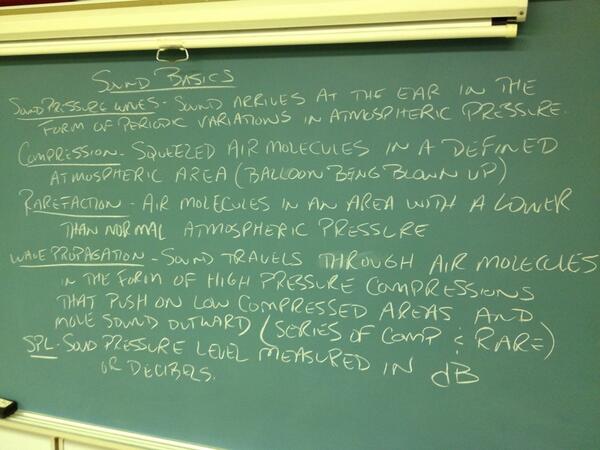 SOUND BASICS
SOUND PRESSURE WAVES - SOUND ARRIVES AT THE EAR IN THE
FORM OF PERIODIC VARIATIONS IN ATMOSPHERIC PRESSURE.
COMPRESSION - SQUEEZED AIR MOLECULES IN A DEFINED
ATMOSPHERIC AREA (BALLOON BEING BLOWN UP)
RAREFACTION - AIR MOLECULES IN AN AREA WITH A LOWER
THAN NORMAL ATMOSPHERIC PRESSURE
WAVE PROPAGATION - SOUND TRAVELS THROUGH AIR MOLECULES
IN THE FORM OF HIGH PRESSURE COMPRESSIONS
THAT PUSH ON LOW COMPRESSED AREAS AND
MOVE SOUND OUTWARD (SERIES OF COMP & RARE)
SPL - SOUND PRESSURE LEVEL MEASURED IN dB
OR DECIBELS.